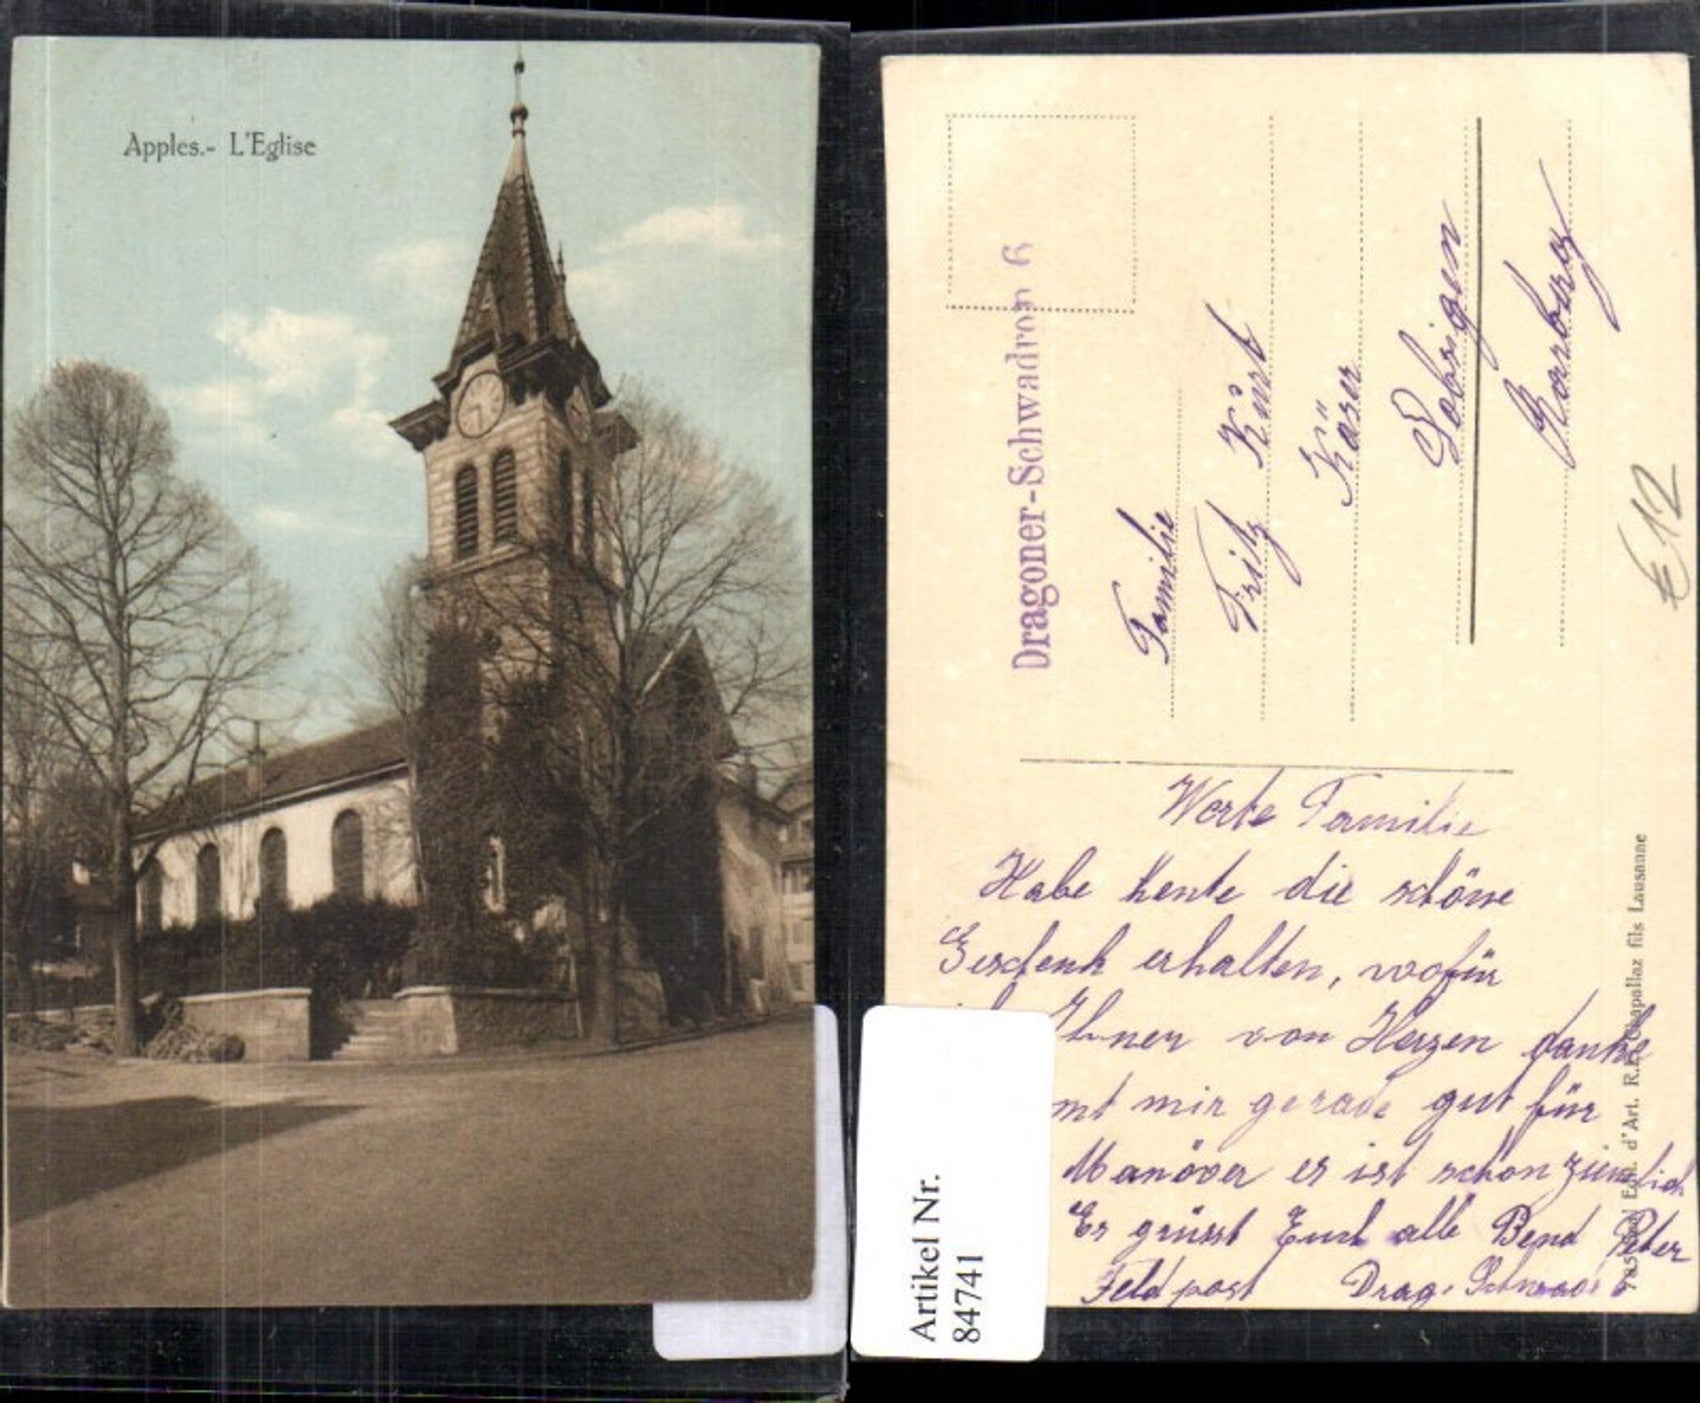 Apples.- L'Eglise
Dragoner-Schwadron 6
Familie
Fritz Kürt
Käser
Aarburg
€ 12
Werte Familie
Habe heute die schöne
Geschenk erhalten, wofür
Ihnen von Herzen danke
mt mir gerade gut für
Manöver es ist schon ziemlich
Es grüsst Euch alle Bend Peter
Feldpost Drag. Schwad. 6
Edit. d'Art. R. E. Chapallaz fils Lausanne
Artikel Nr.
84741